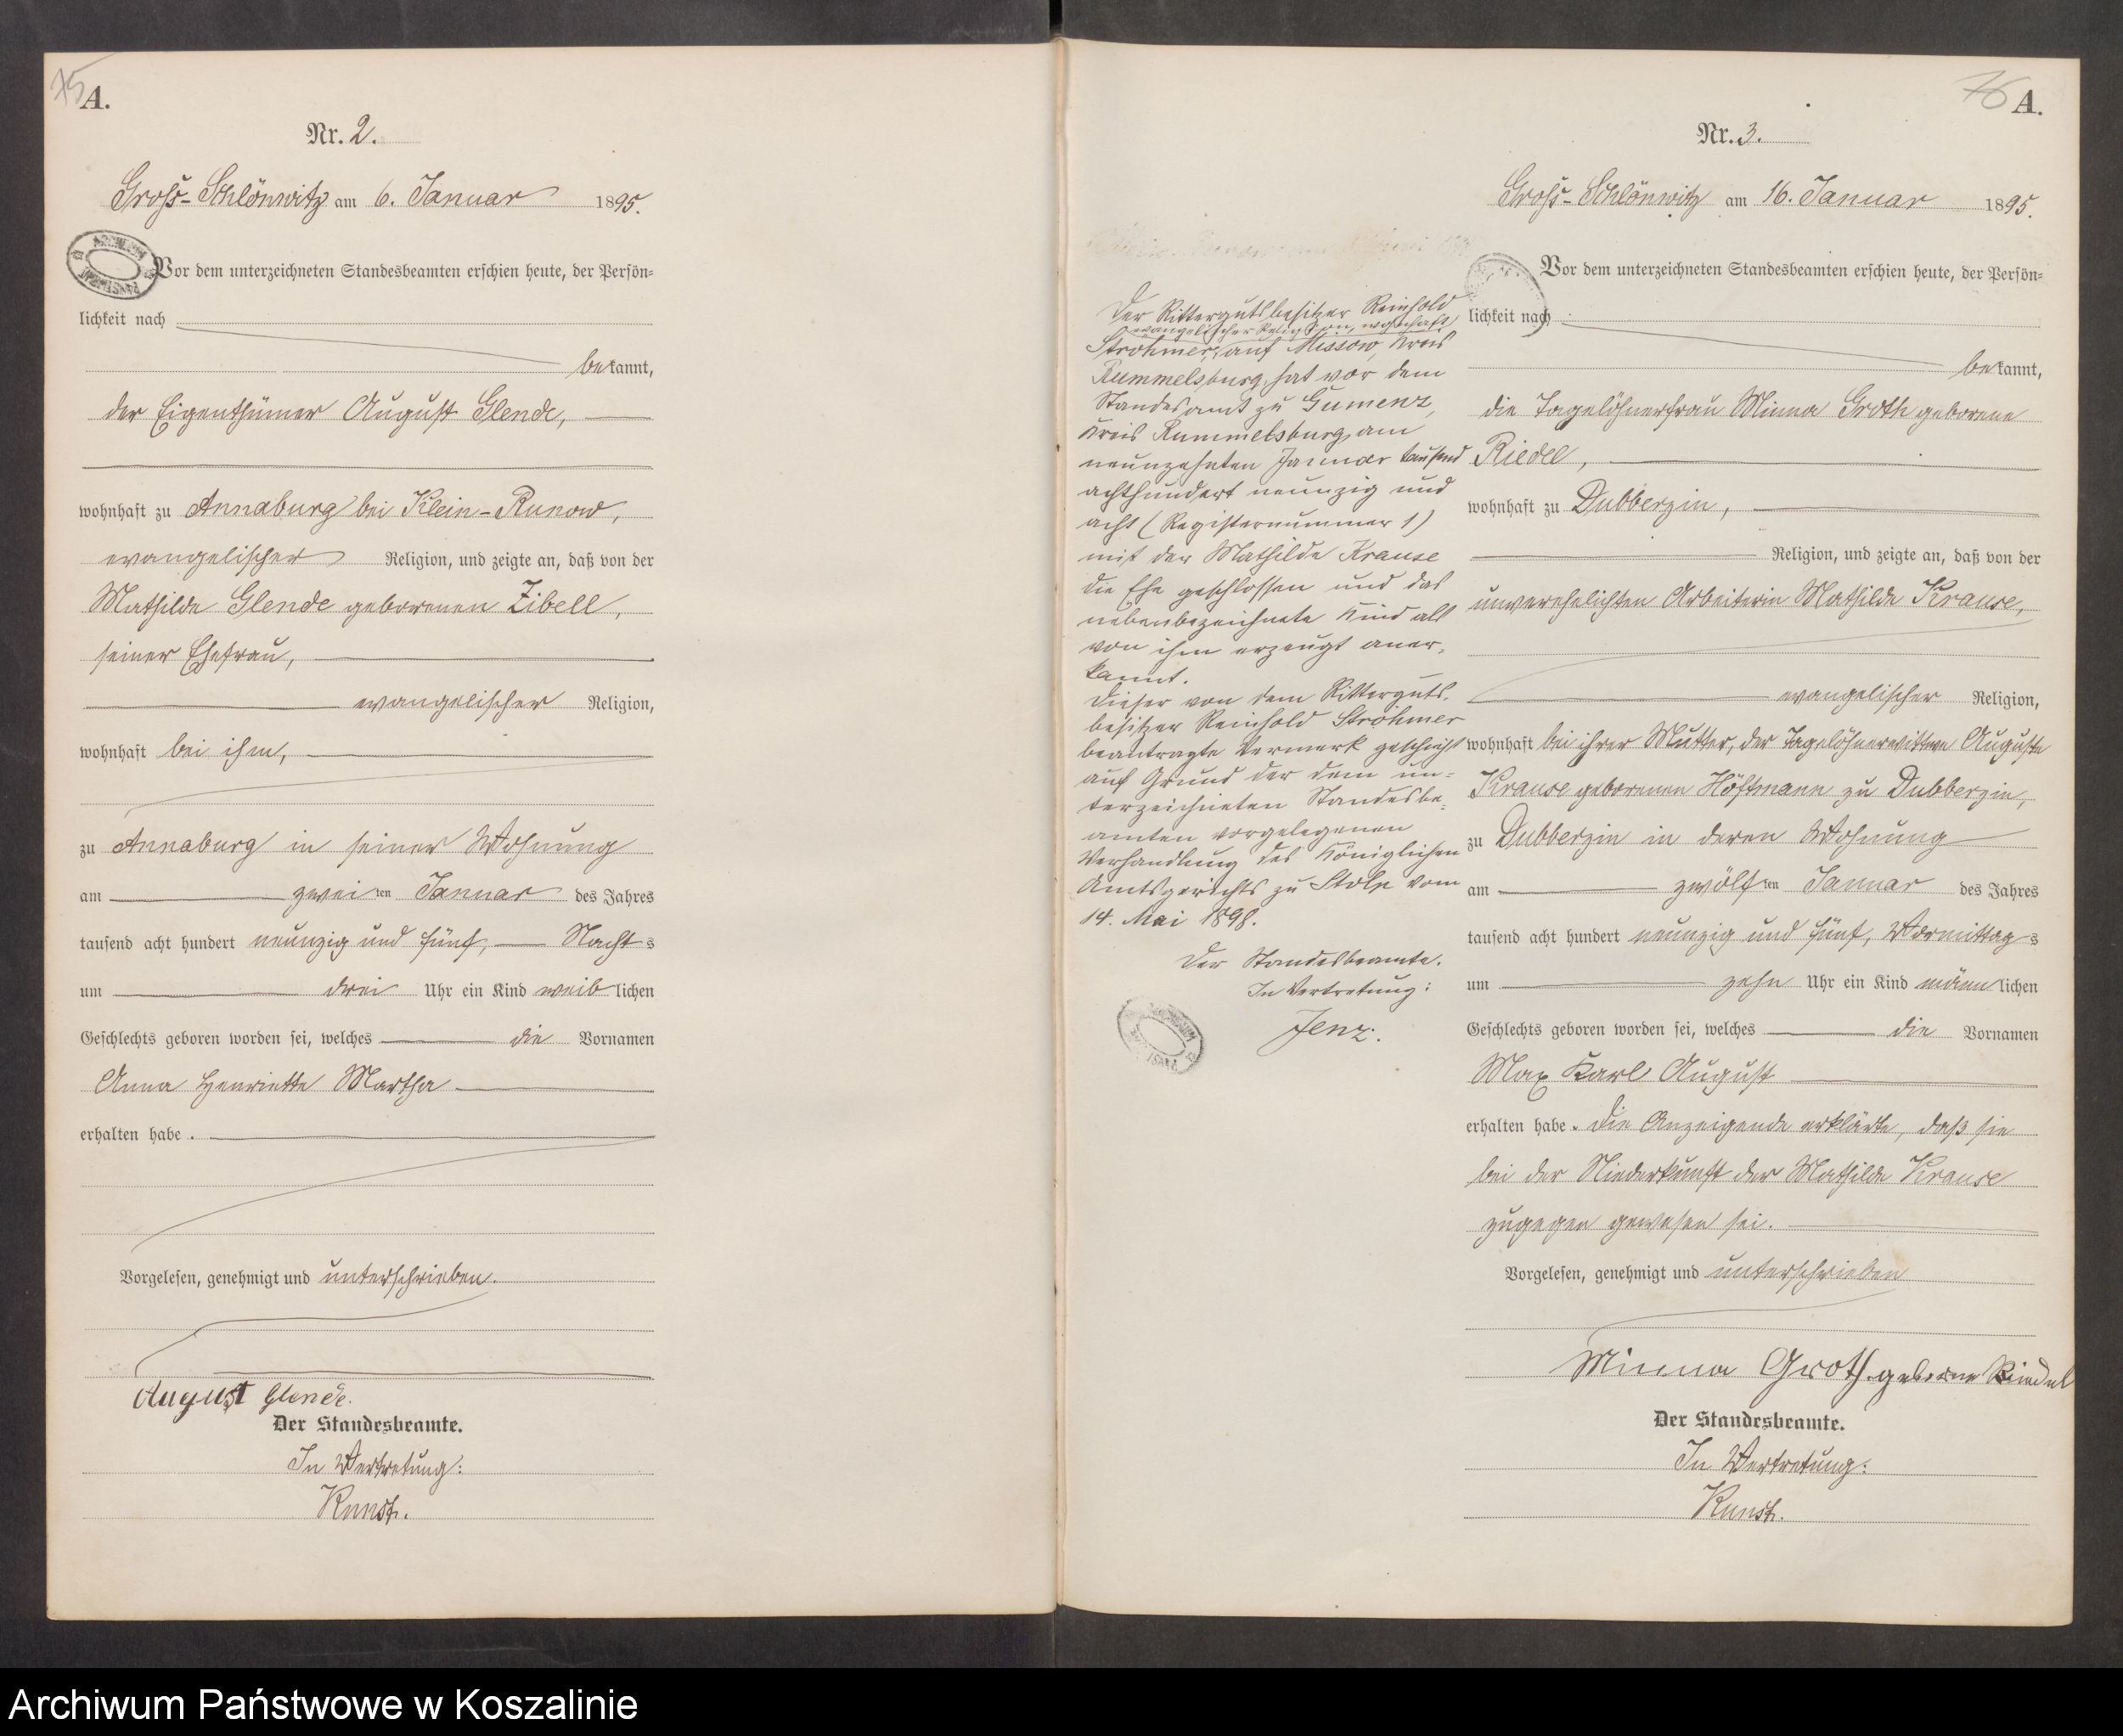 75
A.
Nr. 2.
Groß-Schlönwitz am 6. Januar 1895.
Vor dem unterzeichneten Standesbeamten erschien heute, der Persön=
lichkeit nach
bekannt,
der Eigenthümer August Glende,
wohnhaft zu Annaburg bei Klein-Runow,
evangelischer Religion, und zeigte an, daß von der
Mathilde Glende geborenen Zibell,
seiner Ehefrau,
evangelischer Religion,
wohnhaft bei ihm,
zu Annaburg in seiner Wohnung
am zweiten Januar des Jahres
tausend acht hundert neunzig und fünf, Nachts
um drei Uhr ein Kind weiblichen
Geschlechts geboren worden sei, welches die Vornamen
Anna Henriette Martha
erhalten habe.
Vorgelesen, genehmigt und unterschrieben.
August Glende.
Der Standesbeamte.
In Vertretung:
Kunst.
76
A.
Nr. 3.
Groß-Schlönwitz am 16. Januar 1895.
Vor dem unterzeichneten Standesbeamten erschien heute, der Persön=
lichkeit nach
bekannt,
die Tagelöhnerfrau Minna Groth geborene
Riedel,
wohnhaft zu Dubberzin,
Religion, und zeigte an, daß von der
unverehelichten Arbeiterin Mathilde Krause,
evangelischer Religion,
wohnhaft bei ihrer Mutter, der Tagelöhnerwittwe Auguste
Krause geborenen Höftmann zu Dubberzin,
zu Dubberzin in deren Wohnung
am zwölften Januar des Jahres
tausend acht hundert neunzig und fünf, Vormittags
um zehn Uhr ein Kind männlichen
Geschlechts geboren worden sei, welches die Vornamen
Max Karl August
erhalten habe. Die Anzeigende erklärte, daß sie
bei der Niederkunft der Mathilde Krause
zugegen gewesen sei.
Vorgelesen, genehmigt und unterschrieben
Minna Groth geborne Riedel
Der Standesbeamte.
In Vertretung:
Kunst.
Der Rittergutsbesitzer Reinhold
evangelischer Religion, wohnhaft
Ströhmer, auf Missow, Kreis
Rummelsburg, hat vor dem
Standesamt zu Gumenz,
Kreis Rummelsburg, am
neunzehnten Januar tausend
achthundert neunzig und
acht (Registernummer 1)
mit der Mathilde Krause
die Ehe geschlossen und das
nebenbezeichnete Kind als
von ihm erzeugt aner-
kannt.
Dieser von dem Ritterguts-
besitzer Reinhold Ströhmer
beantragte Vermerk geschieht
auf Grund der dem un=
terzeichneten Standesbe-
amten vorgelegenen
Verhandlung des Königlichen
Amtsgerichts zu Stolp vom
14. Mai 1898.
Der Standesbeamte.
In Vertretung:
Jenz.
Archiwum Państwowe w Koszalinie